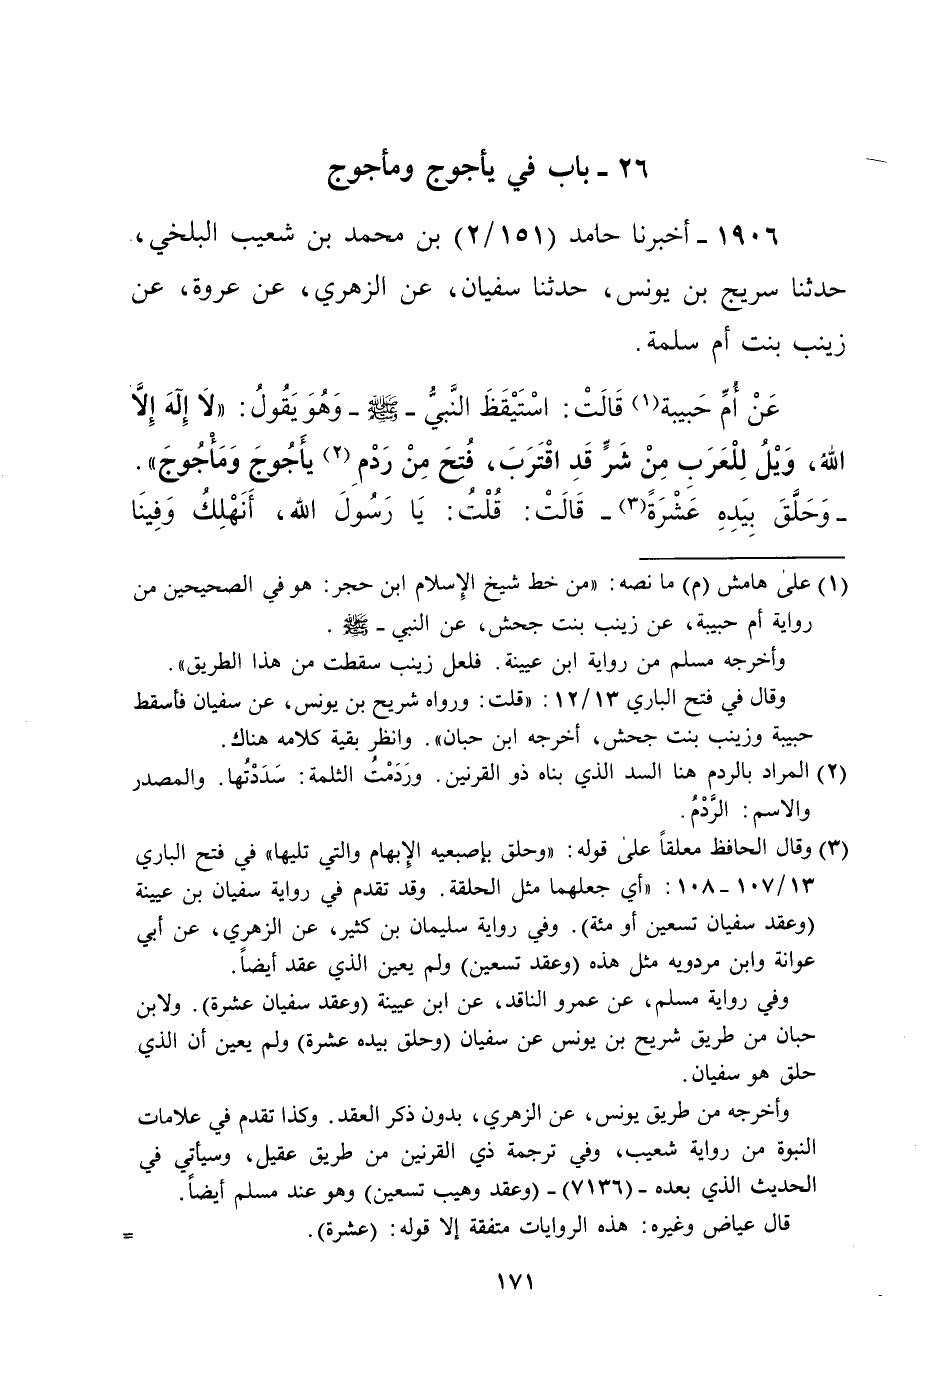 ٢٦ - باب في يأجوج ومأجوج
١٩٠٦ - أخبرنا حامد (٢/١٥١) بن محمد بن شعيب البلخي،
حدثنا سريج بن يونس، حدثنا سفيان، عن الزهري، عن عروة، عن
زينب بنت أم سلمة.
عَنْ أُمِّ حَبِيبة(١) قَالَتْ: اسْتَيْقَظَ النَّبيُّ - ﷺ - وَهُوَ يَقُولُ: «لَا إِلٰهَ إِلاَّ
اللهُ، وَيْلُ لِلْعَرَبِ مِنْ شَرٍّ قَدِ اقْتَرَبَ، فُتِحَ مِنْ رَدْمِ (٢) يأْجُوجَ وَمَأْجُوجَ».
- وَحَلَّقَ بِيَدِهِ عَشْرَةً(٣) - قَالَتْ: قُلْتُ: يَا رَسُولَ اللهِ، أَنَهْلِكُ وَفِينَا
(١) علىٰ هامش (م) ما نصه: «من خط شيخ الإسلام ابن حجر: هو في الصحيحين من
رواية أم حبيبة، عن زينب بنت جحش، عن النبي - ﷺ .
وأخرجه مسلم من رواية ابن عيينة. فلعل زينب سقطت من هذا الطريق».
وقال في فتح الباري ١٢/١٣: «قلت: ورواه شريح بن يونس، عن سفيان فأسقط
حبيبة وزينب بنت جحش، أخرجه ابن حبان». وانظر بقية كلامه هناك.
(٢) المراد بالردم هنا السد الذي بناه ذو القرنين. ورَدَمْتُ الثلمة: سَدَدْتُها. والمصدر
والاسم: الرَّدْمُ.
(٣) وقال الحافظ معلقاً علىٰ قوله: «وحلق بإصبعيه الإبهام والتي تليها» في فتح الباري
١٠٧/١٣ - ١٠٨: «أي جعلهما مثل الحلقة. وقد تقدم في رواية سفيان بن عيينة
(وعقد سفيان تسعين أو مئة). وفي رواية سليمان بن كثير، عن الزهري، عن أبي
عوانة وابن مردويه مثل هذه (وعقد تسعين) ولم يعين الذي عقد أيضاً.
وفي رواية مسلم، عن عمرو الناقد، عن ابن عيينة (وعقد سفيان عشرة). ولابن
حبان من طريق شريح بن يونس عن سفيان (وحلق بيده عشرة) ولم يعين أن الذي
حلق هو سفيان.
وأخرجه من طريق يونس، عن الزهري، بدون ذكر العقد. وكذا تقدم في علامات
النبوة من رواية شعيب، وفي ترجمة ذي القرنين من طريق عقيل، وسيأتي في
الحديث الذي بعده - (٧١٣٦) - (وعقد وهيب تسعين) وهو عند مسلم أيضاً.
قال عياض وغيره: هذه الروايات متفقة إلا قوله: (عشرة). =
١٧١